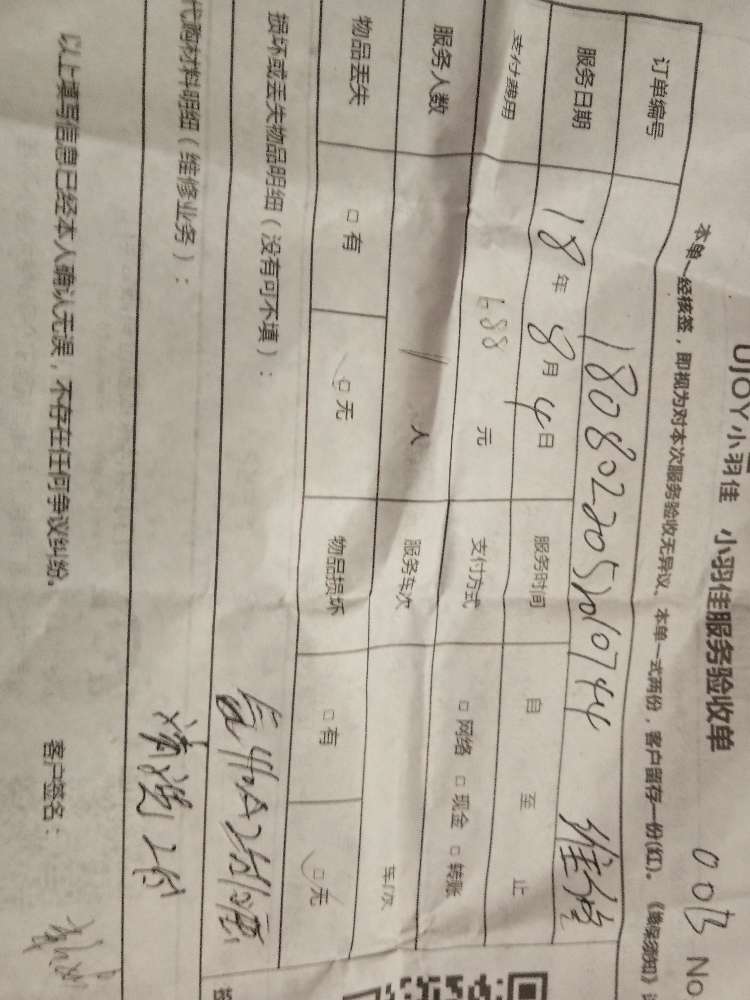 UJOY小羽佳 小羽佳服务验收单 No
00B
本单一经核签，即视为对本次服务验收无异议、本单一式两份，客户留存一份(红)。《维保须知》
订单编号
服务日期 18年8月4日 服务时间 自 至 止 维修
支付费用 688 元 支付方式 □网络 □现金 □转账
服务人数 1 人 服务车次 车/次
物品丢失 □有 □无 物品损坏 □有 □无
损坏或丢失物品明细（没有可不填）：
代购材料明细（维修业务）： 清洗2台
以上填写信息已经本人确认无误，不存在任何争议纠纷。 客户签名：